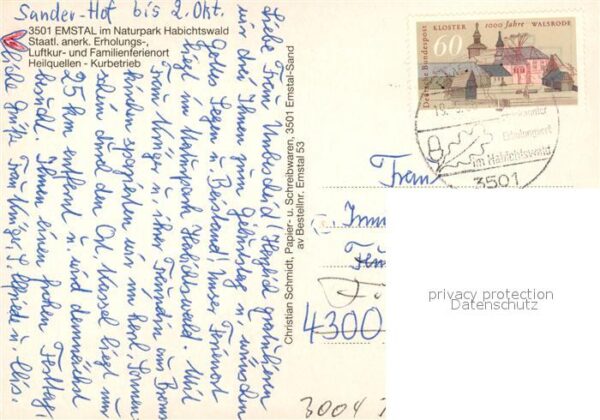 Sander-Hof bis 2. Okt.
3501 EMSTAL im Naturpark Habichtswald
Staatl. anerk. Erholungs-,
Luftkur- und Familienferienort
Heilquellen - Kurbetrieb
Liebe Frau Unbescheid! Herzlich gratulieren
wir Ihnen zum Geburtstag u. wünschen
Gottes Segen u. Beistand! Unser Ferienort
liegt im Naturpark Habichtswald. Mit
Frau Krüger u. ihrer Freundin aus Bremen
spazierten wir im herrl. Sonnen-
schein durch den Ort. Kassel liegt nur
25 km entfernt u. wird demnächst
besucht. Ihnen einen frohen Festtag,
liebe Grüße Frau Krüger, u.
Christian Schmidt, Papier- u. Schreibwaren, 3501 Emstal-Sand
av Bestellnr. Emstal 53
Deutsche Bundespost
60
KLOSTER
1000 Jahre
WALSRODE
Erholungsort
im Habichtswald
3501
Frau
4300
3004
privacy protection
Datenschutz